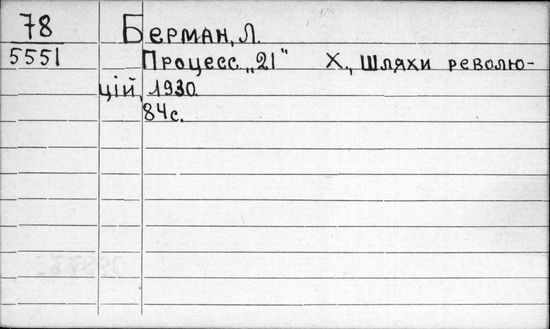 78 Берман, Л.
5551 Процесс „21" Х., Шляхи револю-
цій, 1930.
84с.